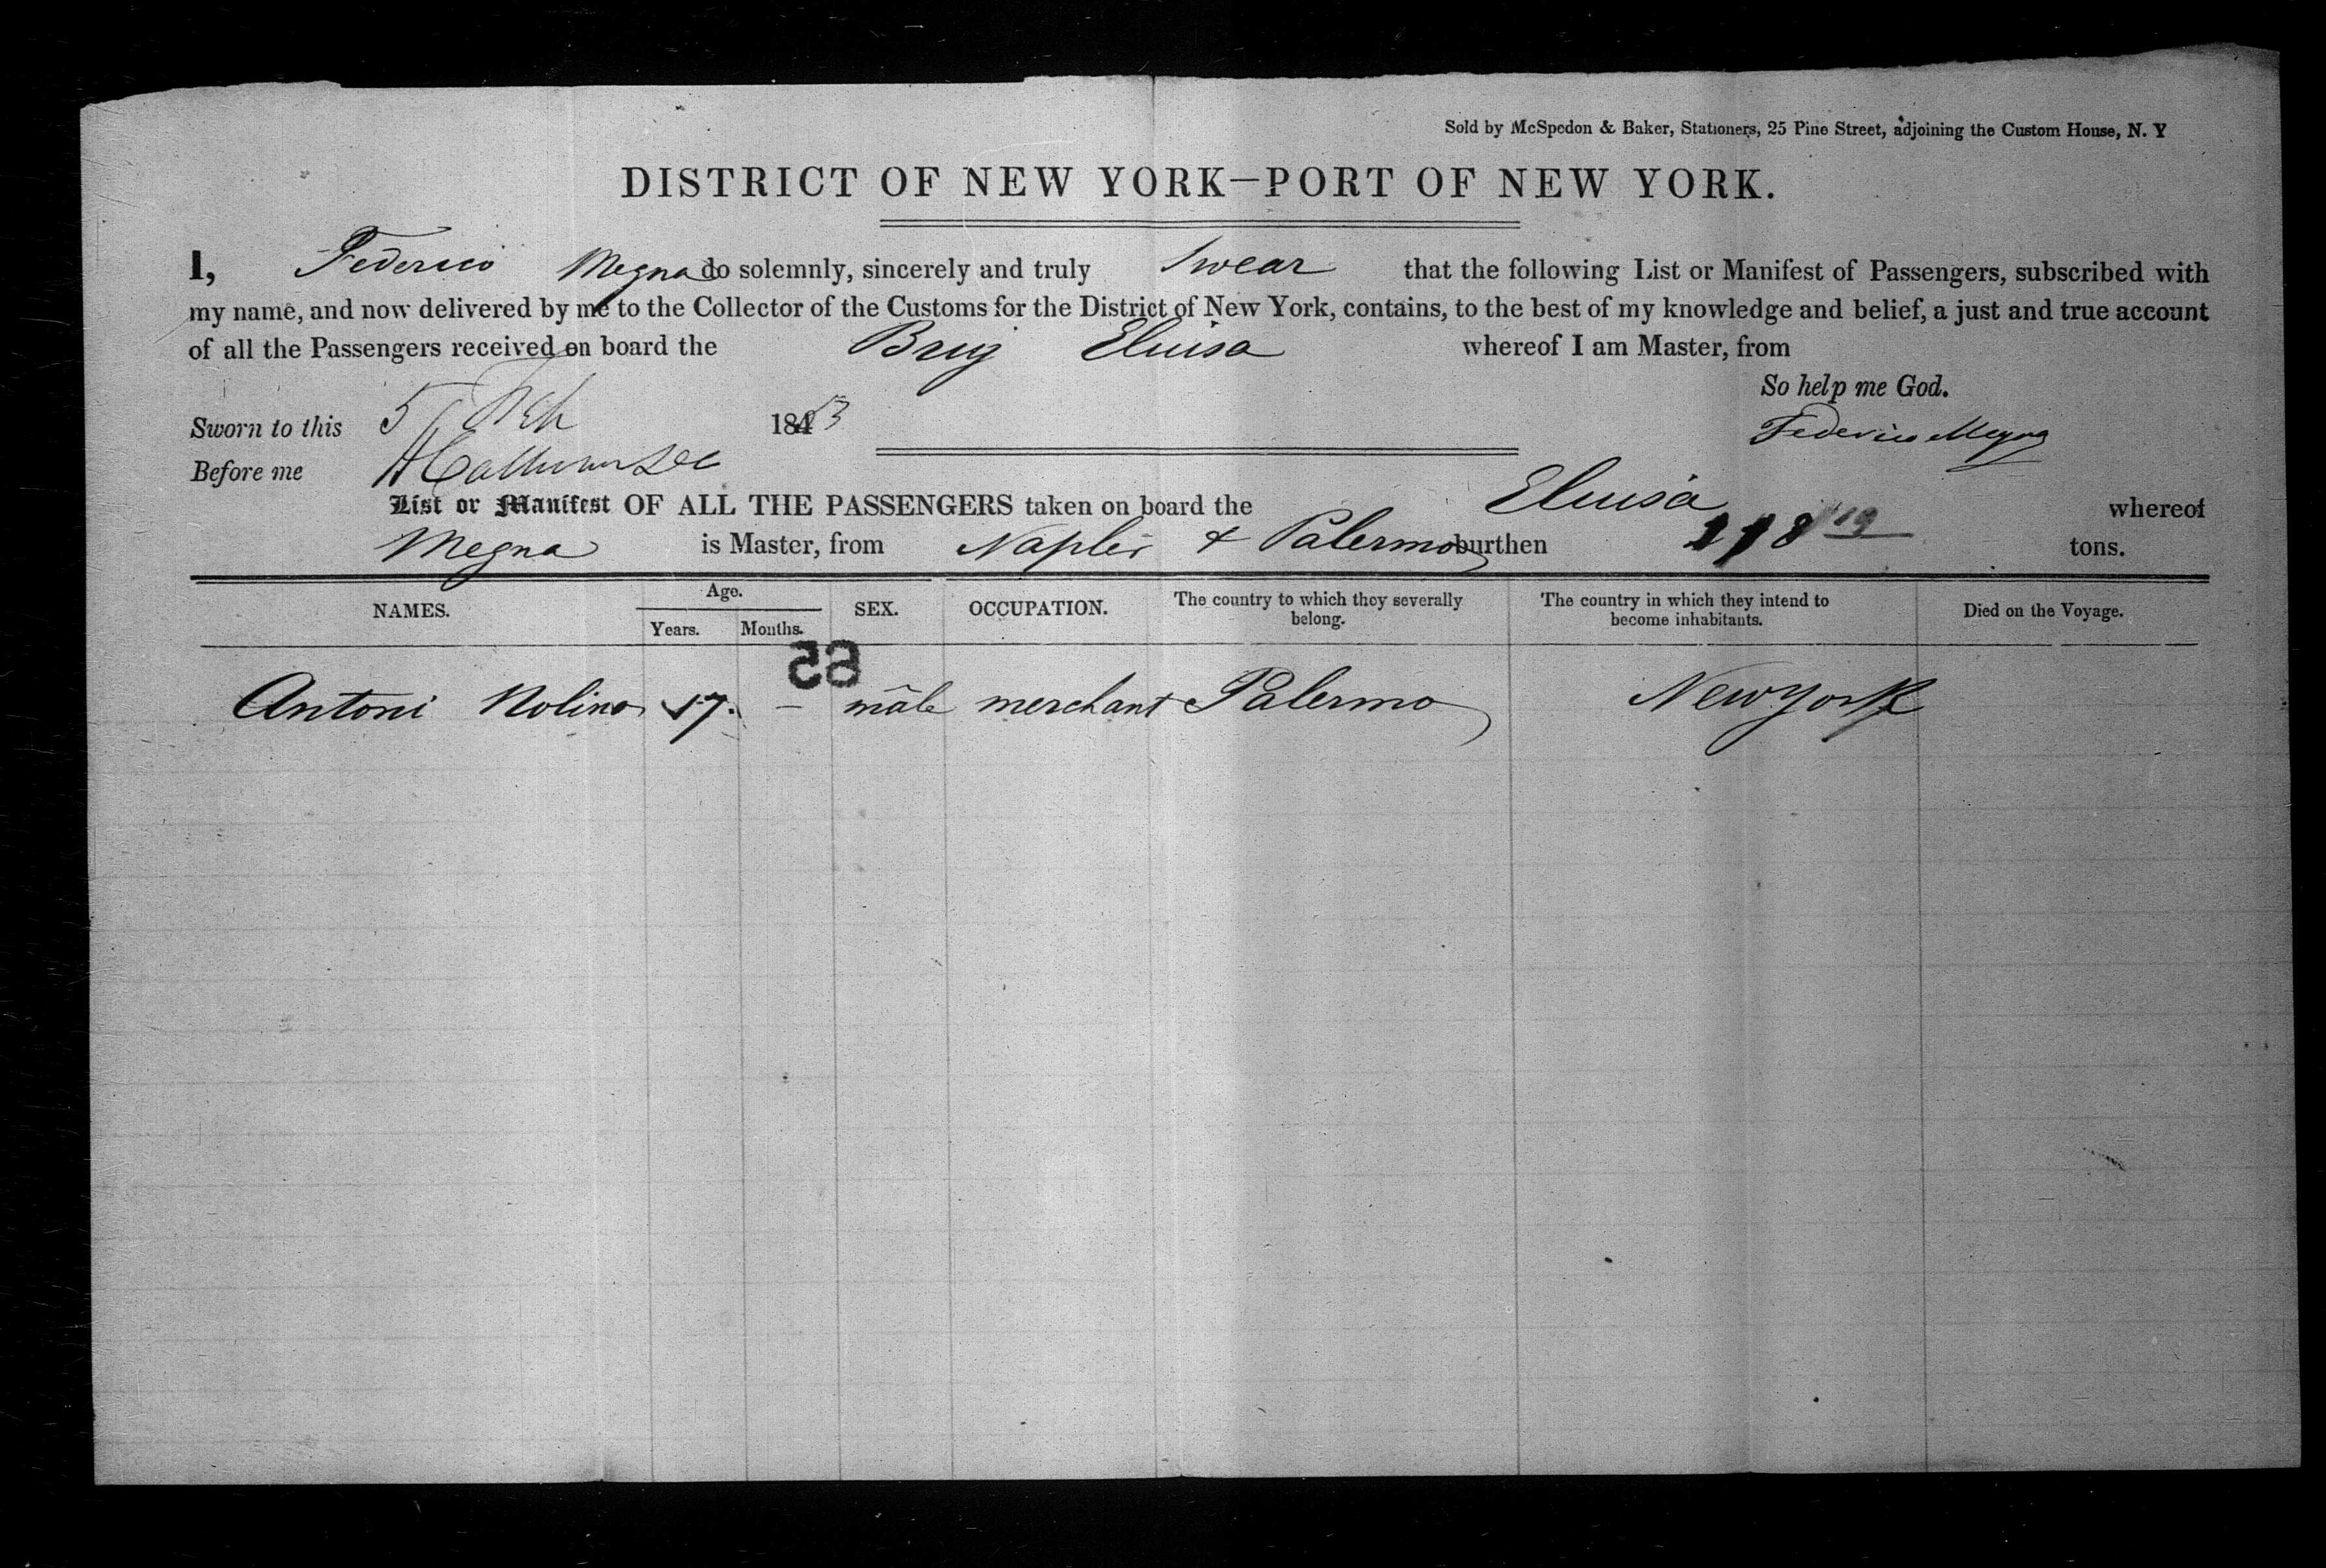 Sold by McSpedon & Baker, Stationers, 25 Pine Street, adjoining the Custom House, N. Y
DISTRICT OF NEW YORK—PORT OF NEW YORK.
I, Federico Megna do solemnly, sincerely and truly swear that the following List or Manifest of Passengers, subscribed with
my name, and now delivered by me to the Collector of the Customs for the District of New York, contains, to the best of my knowledge and belief, a just and true account
of all the Passengers received on board the Brig Eluisa whereof I am Master, from
So help me God.
Sworn to this 5 Feb 1853
Federico Megna
Before me
List or Manifest OF ALL THE PASSENGERS taken on board the Eluisa whereof
Megna is Master, from Naples & Palermo burthen tons.
NAMES. Age. Years. Months. SEX. OCCUPATION. The country to which they severally belong. The country in which they intend to become inhabitants. Died on the Voyage.
65
Antoni Nolino 17. – male merchant Palermo New York